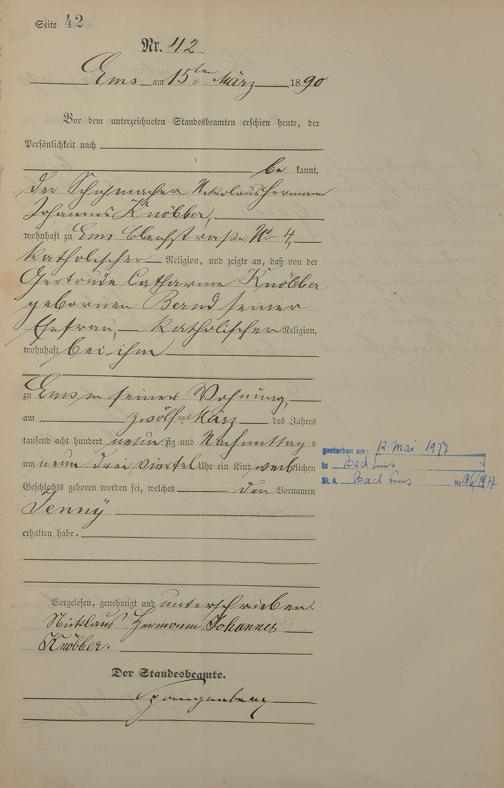 Seite 42
Nr. 42
Ems am 15ten März 1890
Vor dem unterzeichneten Standesbeamten erschien heute, der
Persönlichkeit nach
be kannt,
der Schuhmacher Nikolaus Hermann
Johannes Knöbber,
wohnhaft zu Ems Bleichstraße No 4,
katholischer Religion, und zeigte an, daß von der
Gertrude Catharine Knöbber
gebornen Bernd seiner
Ehefrau, katholischer Religion,
wohnhaft bei ihm
zu Ems in seiner Wohnung,
am zwölften März des Jahres
tausend acht hundert neunzig und Nachmittags
um neun drei viertel Uhr ein Kind weiblichen
Geschlechts geboren worden sei, welches den Vornamen
Jenny
erhalten habe.
gestorben am: 12. Mai 1977
in Bad Ems
St. A. Bad Ems Nr.
Vorgelesen, genehmigt und unterschrieben
Nicklaus Hermann Johannes
Knöbber.
Der Standesbeamte.
Spangenberg